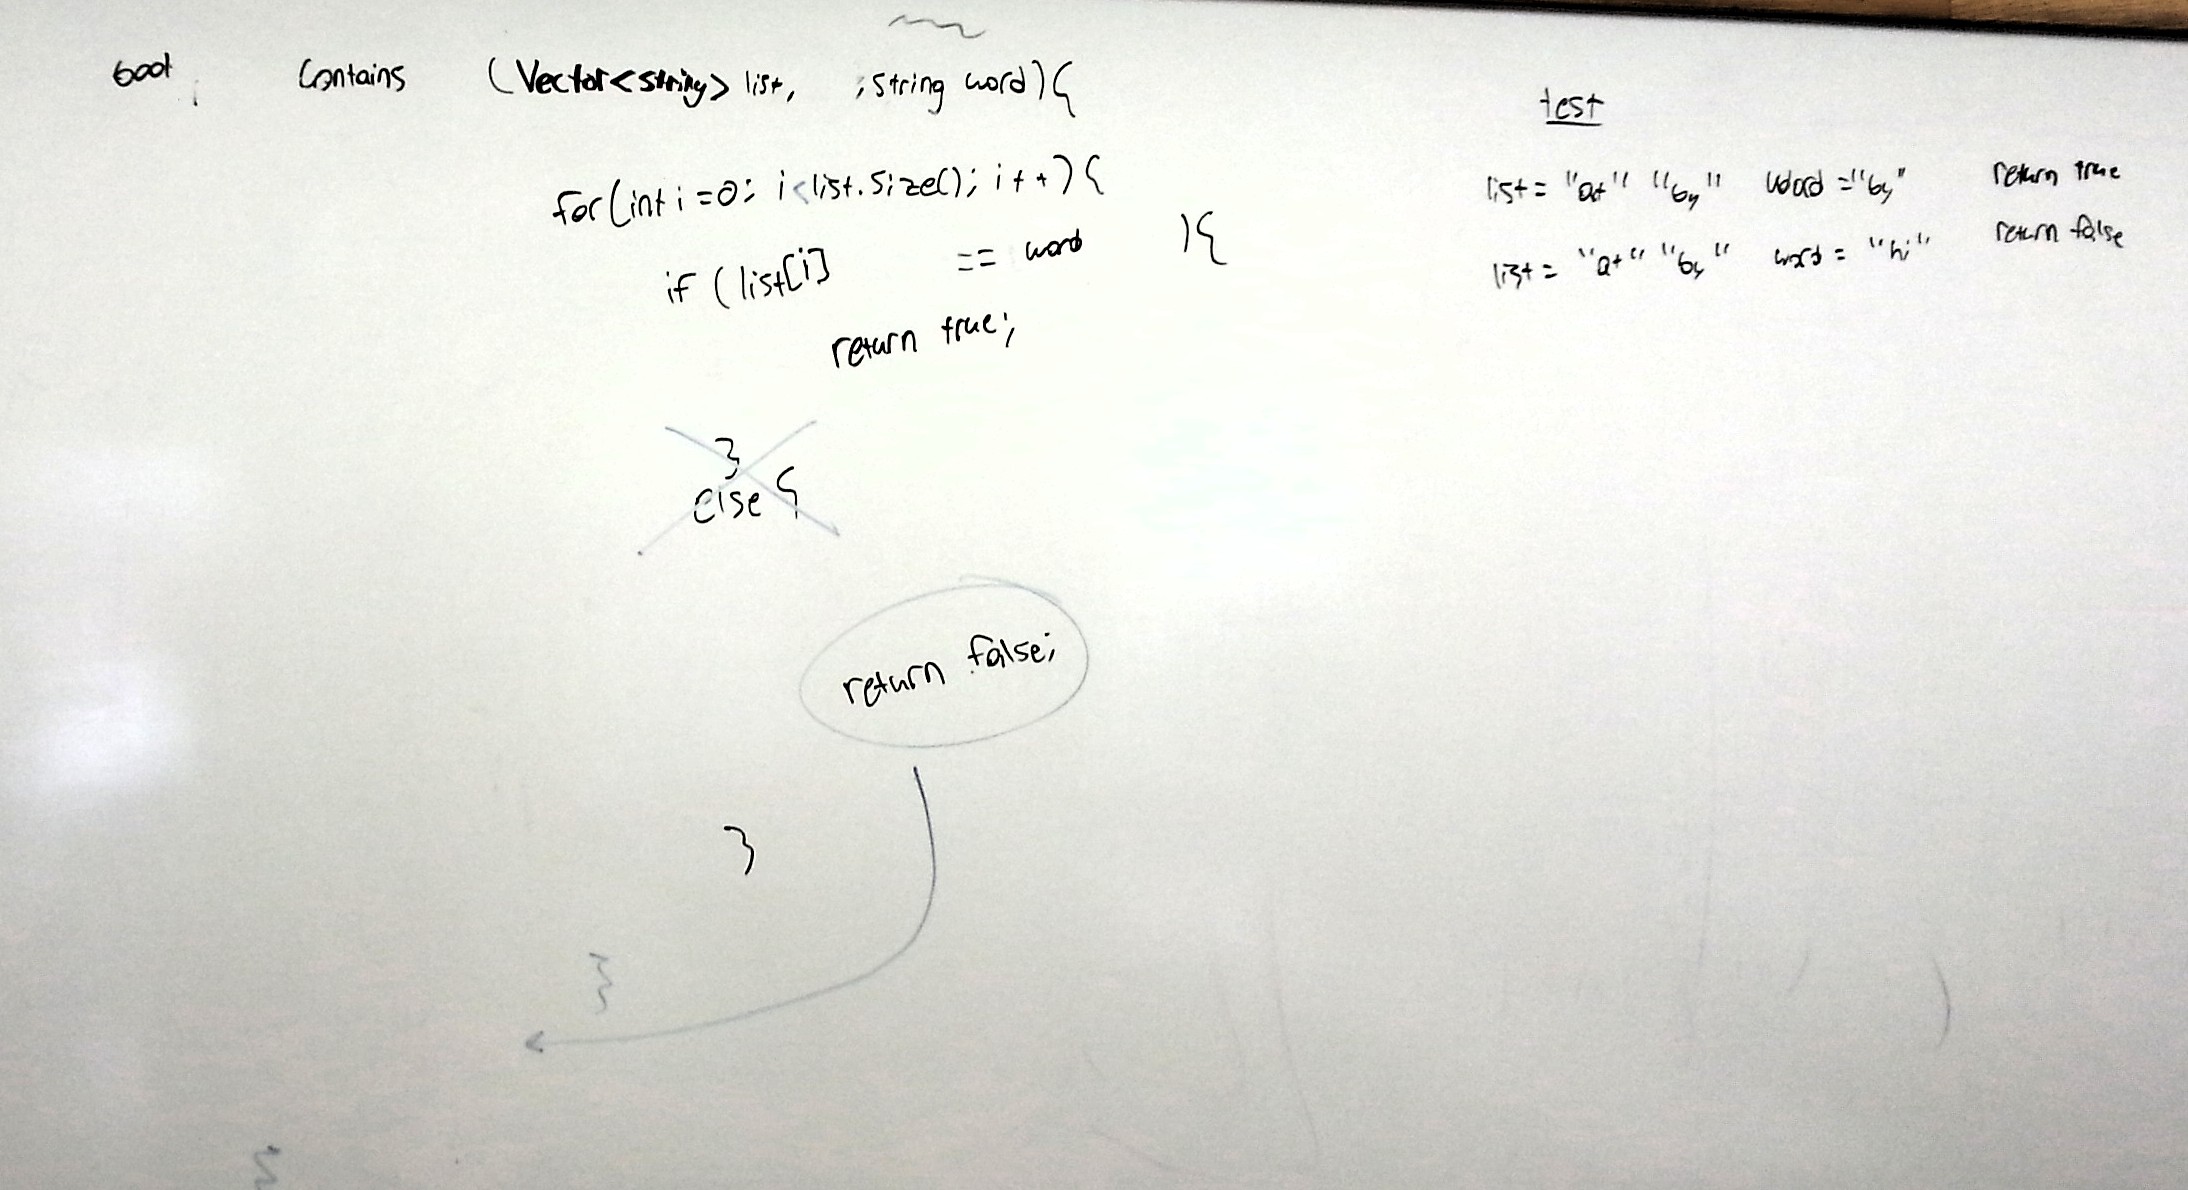 bool Contains (Vector<string> list, , string word){
for(int i=0; i<list.size(); i++){
if (list[i] == word ){
return true;
}
else {
return false;
}
}
}
test
list = "at" "by" word = "by" return true
list = "at" "by" word = "hi" return false